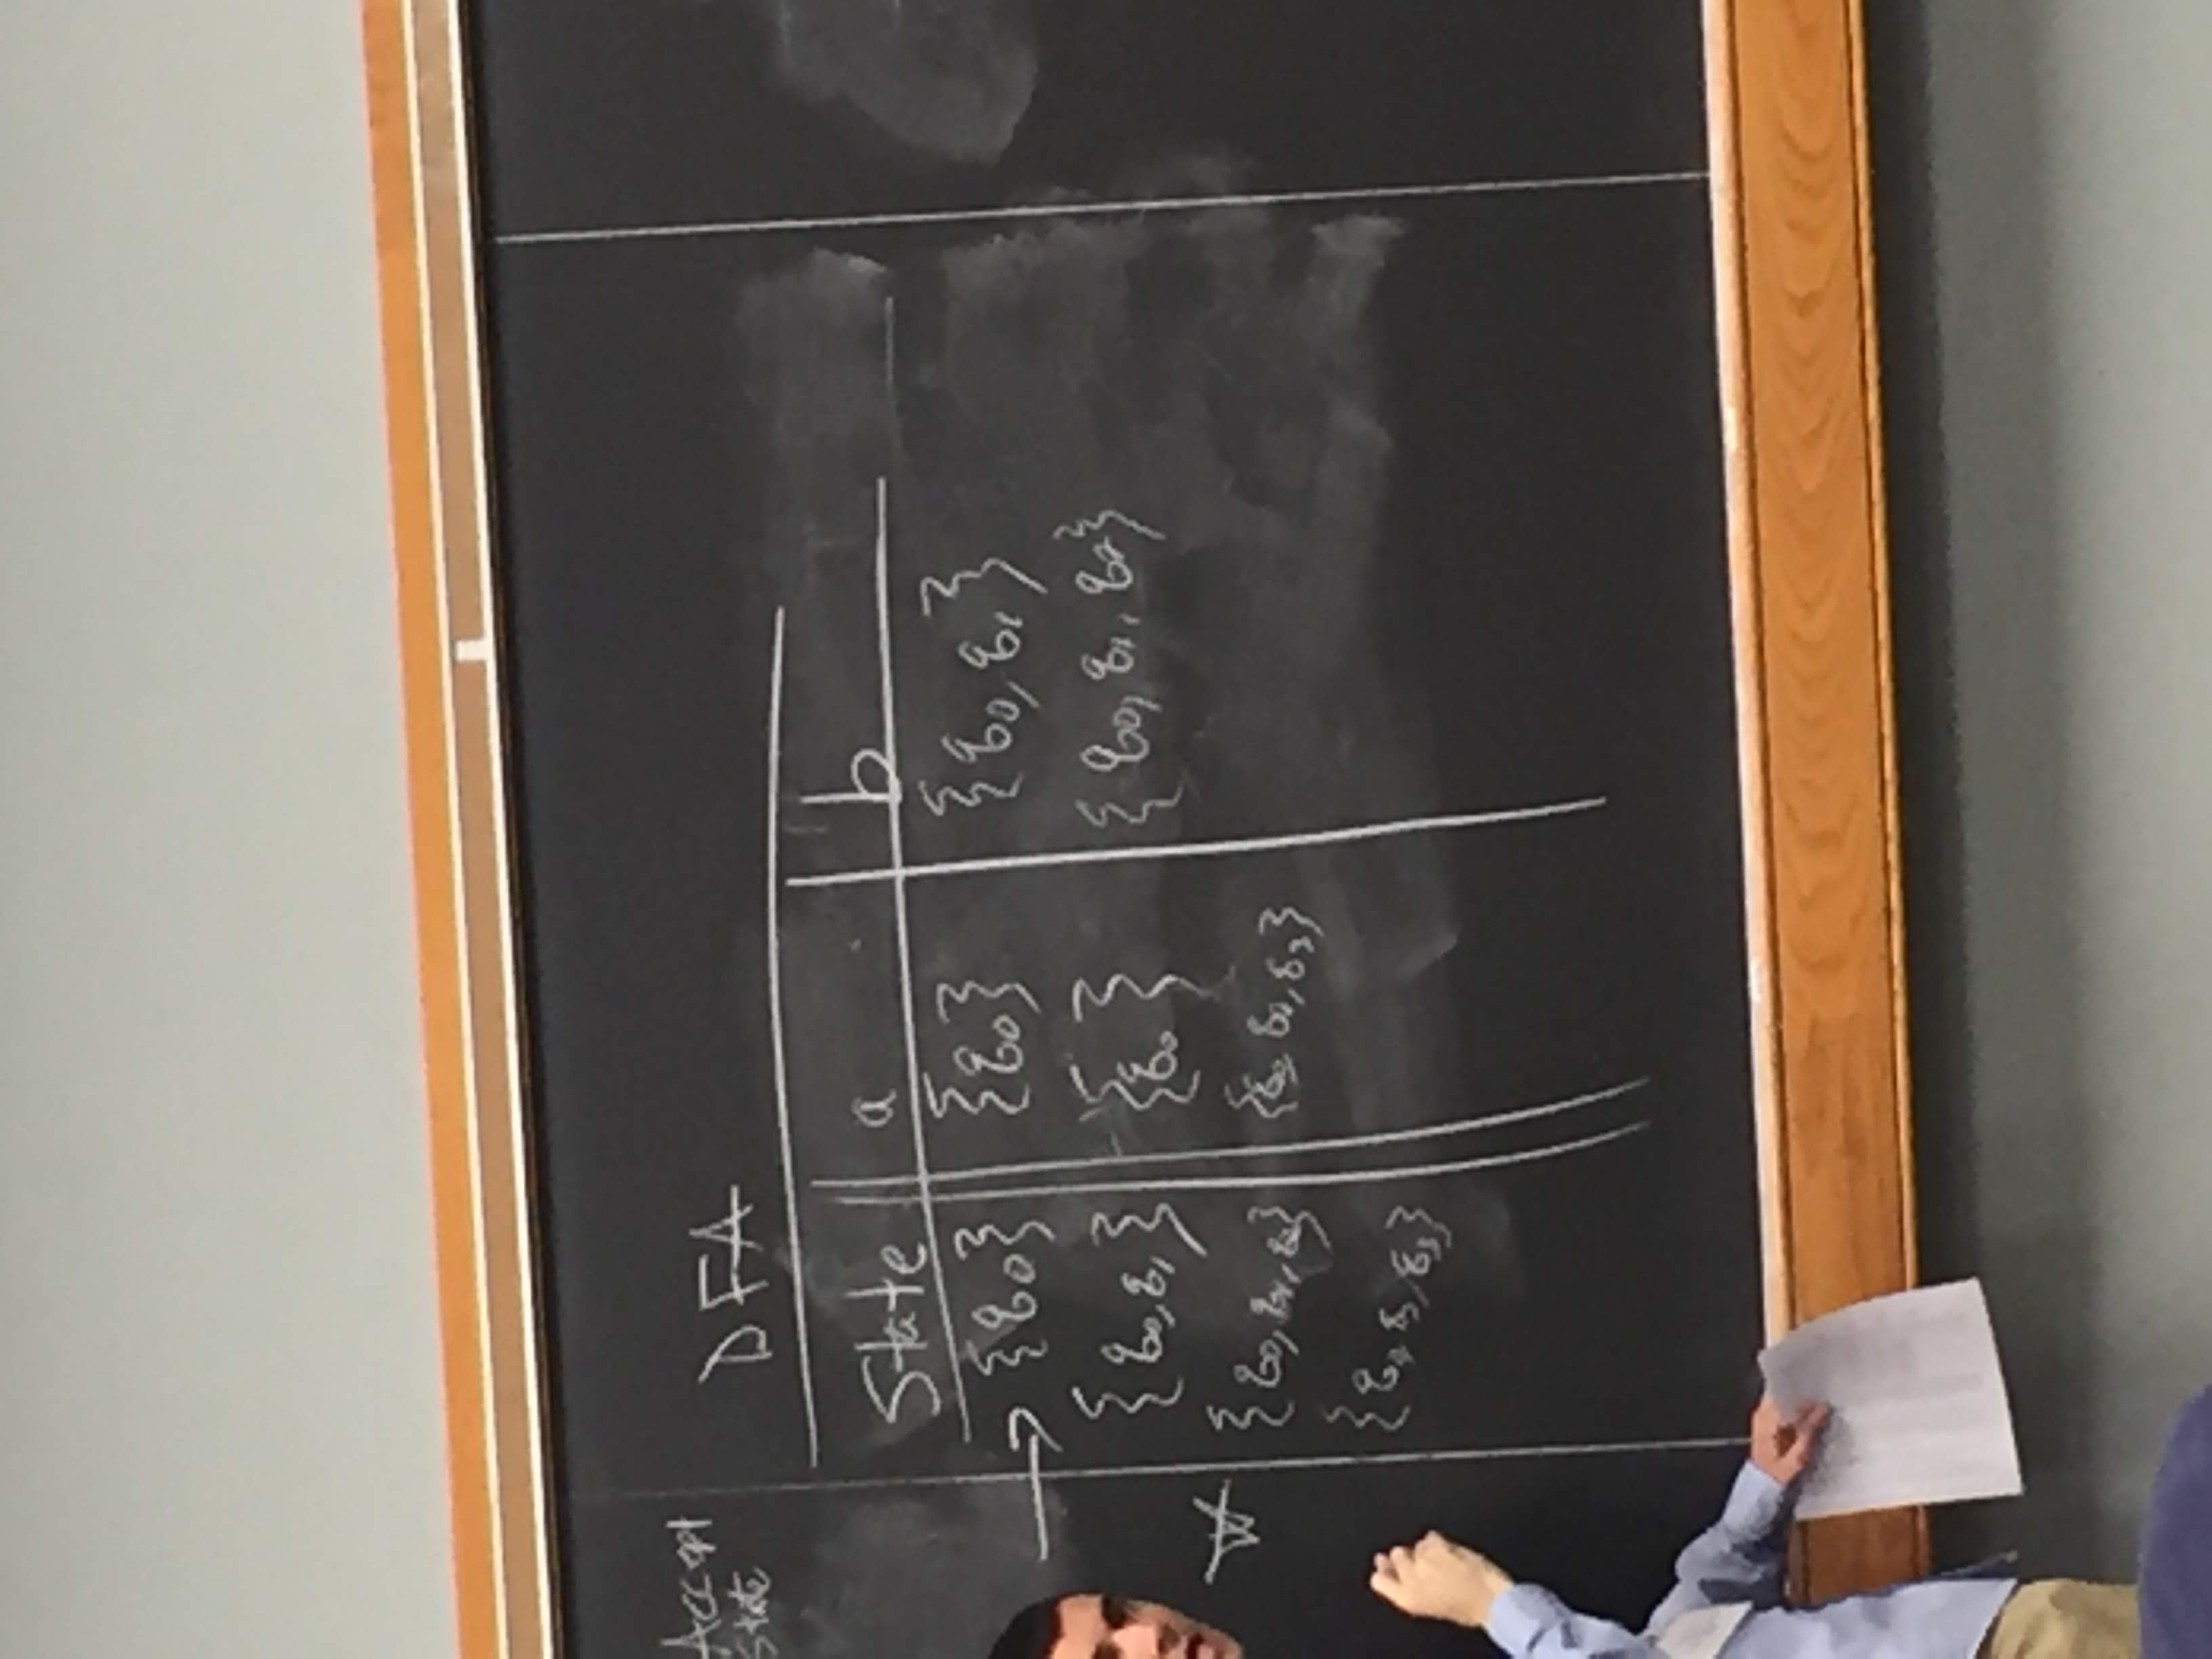 Accept
State
DFA
State a b
→ {q0} {q0} {q0, q1}
{q0, q1} {q0} {q0, q1, q2}
* {q0, q1, q2} {q0, q2, q3}
{q0, q2, q3}